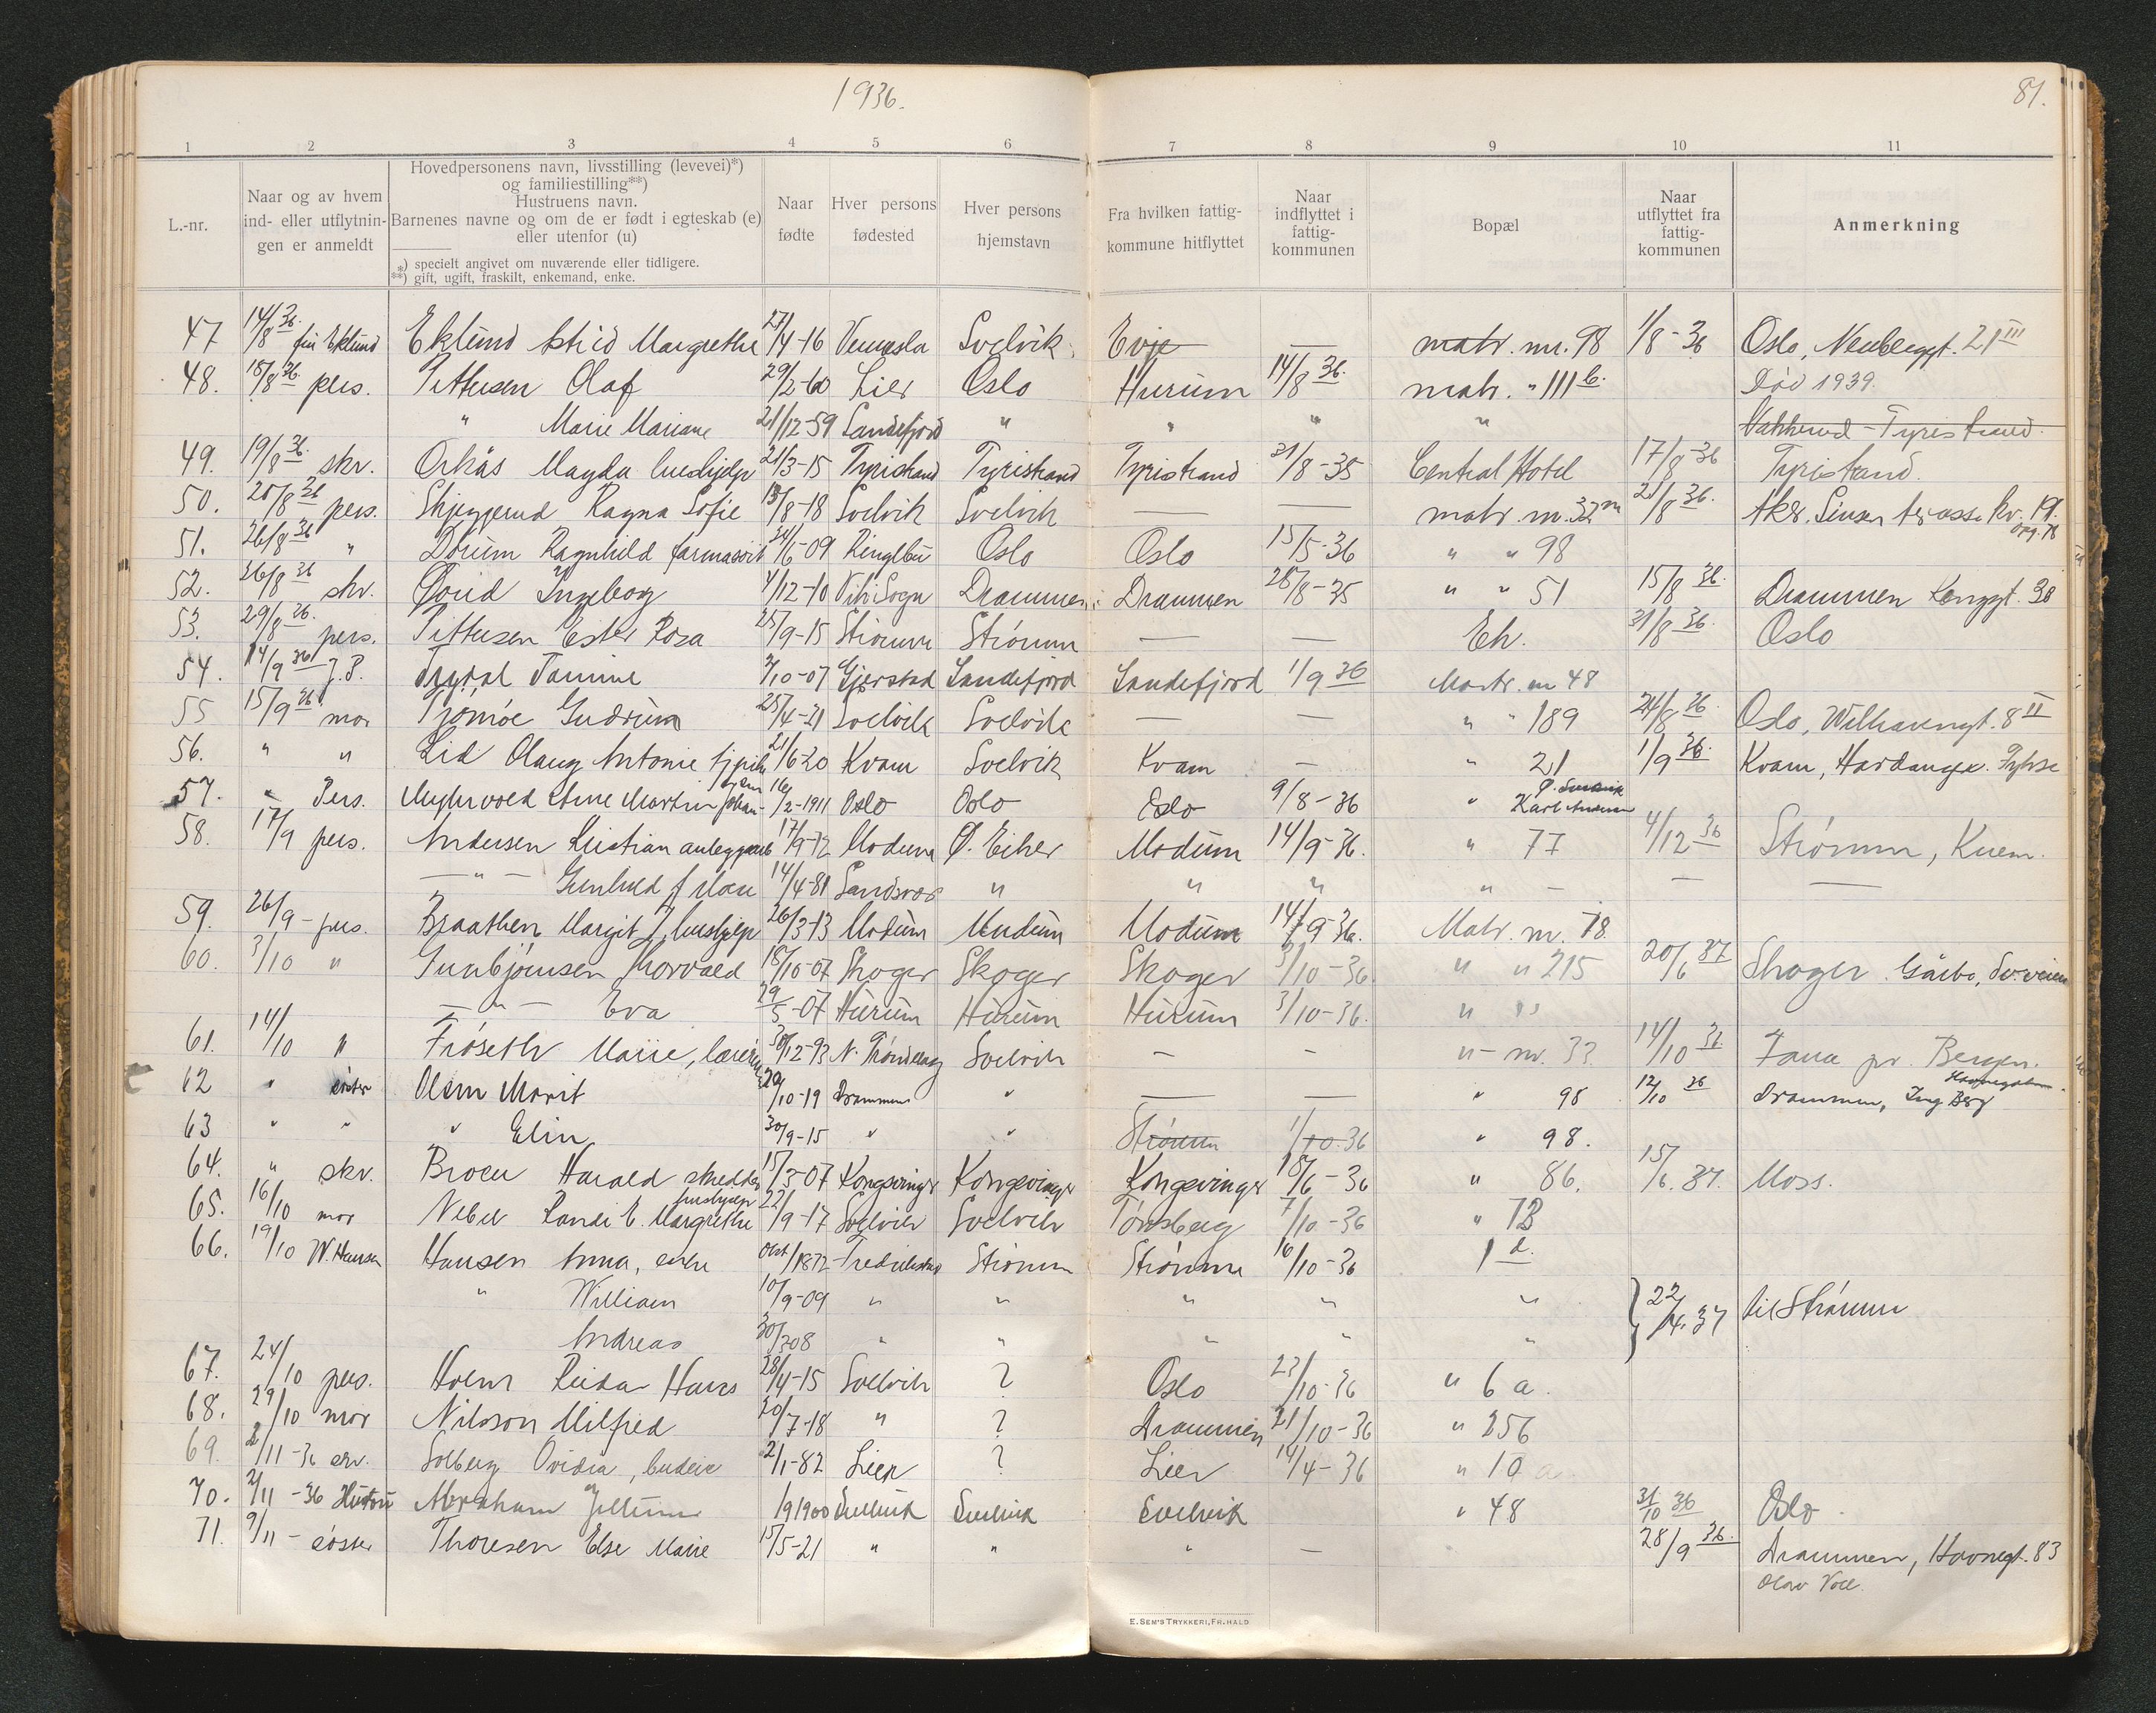 1936.
81.
1 2 3 4 5 6 7 8 9 10 11
L.-nr.
Naar og av hvem
ind- eller utflytnin-
gen er anmeldt
Hovedpersonens navn, livsstilling (levevei)*)
og familiestilling**)
Hustruens navn.
Barnenes navne og om de er født i egteskab (e)
eller utenfor (u)
*) specielt angivet om nuværende eller tidligere.
**) gift, ugift, fraskilt, enkemand, enke.
Naar
fødte
Hver persons
fødested
Hver persons
hjemstavn
Fra hvilken fattig-
kommune hitflyttet
Naar
indflyttet i
fattig-
kommunen
Bopæl
Naar
utflyttet fra
fattig-
kommunen
Anmerkning
47 14/8 36. Eklund Eklund Astrid Margrethe 27/4-16 Vennesla Svelvik Evje — matr. nr. 98 1/8-36 Oslo, 21 III
48. 18/8 36. pers. Tittusen Olaf 29/2-60 Lier Oslo Hurum 14/8 36. matr. " 111 b. Død 1939.
" Marie Mariane 21/12-59 Sandefjord " " " " Vakkerud - Tyristrand
49. 19/8 36. skr. Orkås Magda hushjelp 21/3-15 Tyristrand Tyristrand Tyristrand 31/8-35 Central Hotel 17/8-36 Tyristrand.
50. 25/8 36 pers. Skjeggerud Ragna Sofie 13/8-18 Svelvik Svelvik — — matr. nr. 32 m 21/8 36. Aker. Sinsen terasse kv. 19.
51. 26/8 36 " Dørum Ragnhild farmasøit 24/5-09 Ringebu Oslo Oslo 15/5-36 " " 98
52. 26/8 36 skr. Ingeborg 4/12-10 Vik i Sogn Drammen Drammen 28/8-35 " " 51 15/8 36. Drammen Konggt. 38
53. 29/8 36. pers. Tittusen Ester Rosa 25/9-15 Strømm Strømm — — Eh. 31/8 36. Oslo
54. 14/9 36 J.P. Tamine 3/10-07 Gjerstad Sandefjord Sandefjord 1/9 36 Matr. nr 48
55 15/9 36 mor Tjømøe Gudrun 25/4-21 Svelvik Svelvik — — " " 189 24/8 36. Oslo, 8 II
56. " " Lid Olaug Antonie 21/6 20 Kvam Svelvik Kvam — " 21 1/9 36. Kvam, Hardanger.
57. " Pers. Arne Martin Johan- 16/2-1911 Oslo Oslo Oslo 9/8-36 " Karl Andersen
58. 17/9 pers. Andersen Kristian anleggsarb 17/9-72 Modum Ø. Eiker Modum 14/9-36. " 77 4/12 36 Strømm, Knem.
— " — Gunhild f. Moen 14/4-81 Sandsvær " " " " — — —
59. 26/9 - pers. Braathen Margit J, hushjelp 26/3-13 Modum Modum Modum 14/9-36. Matr. nr. 78.
60. 3/10 " Gunbjørnsen Thorvald 18/10-07 Skoger Skoger Skoger 3/10-36. " " 215 20/6 37 Skoger. Gårbo, Sv.veien
— " — Eva 29/5-07 Hurum Hurum Hurum 3/10-36. " "
61. 14/10 " Frøseth Marie, lærerinne 30/12-93 N. Trøndelag Svelvik — — " - nr. 33. 14/10 36. Fana pr. Bergen.
62 " søster Olsen Marit 20/10-19 Drammen " — — " 98 12/10 36 Drammen, Ing Berg
63 " " " Elin 30/9-15 " " Strømm 1/10-36 " 98.
64. " skr. Broen Harald skredder 15/3-07 Kongsvinger Kongsvinger Kongsvinger 15/6-36 " 86. 15/6.37. Moss.
65. 16/10 mor Randi E. Margrethe 22/9-17 Svelvik Svelvik Tønsberg 7/10-36 " 73
66. 19/10 W. Hansen Hansen Anna, enke Okt/1872 Fredrikstad Strømm Strømm 16/10-36 1 d.
" William 10/9-09 " " " " " } 22/4.37 til Strømm
Andreas 30/308 " " " " "
67. 24/10 pers. Holm Reidar Hans 28/4-15 Svelvik ? Oslo 23/10-36 " 6 a.
68. 29/10 mor Nilsson Milfred 20/7-18 " ? Drammen 21/10-36 " 256
69. 2/11-36 skr. Solberg Ovidia, budeie 2/1-82 Lier ? Lier 14/4-36 " 10 a
70. 2/11-36 Abraham 19 1900 Svelvik Svelvik Svelvik " 48 31/10 36 Oslo
71. 9/11 - søster Thoresen Else Marie 15/5-21 " " " — 28/9 36. Drammen, Havnegt. 83
Olav Voll.
E. SEM'S TRYKKERI, FR.HALD